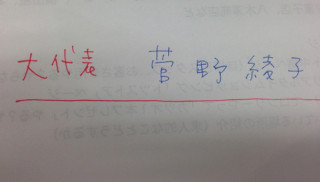 大代表 菅野綾子